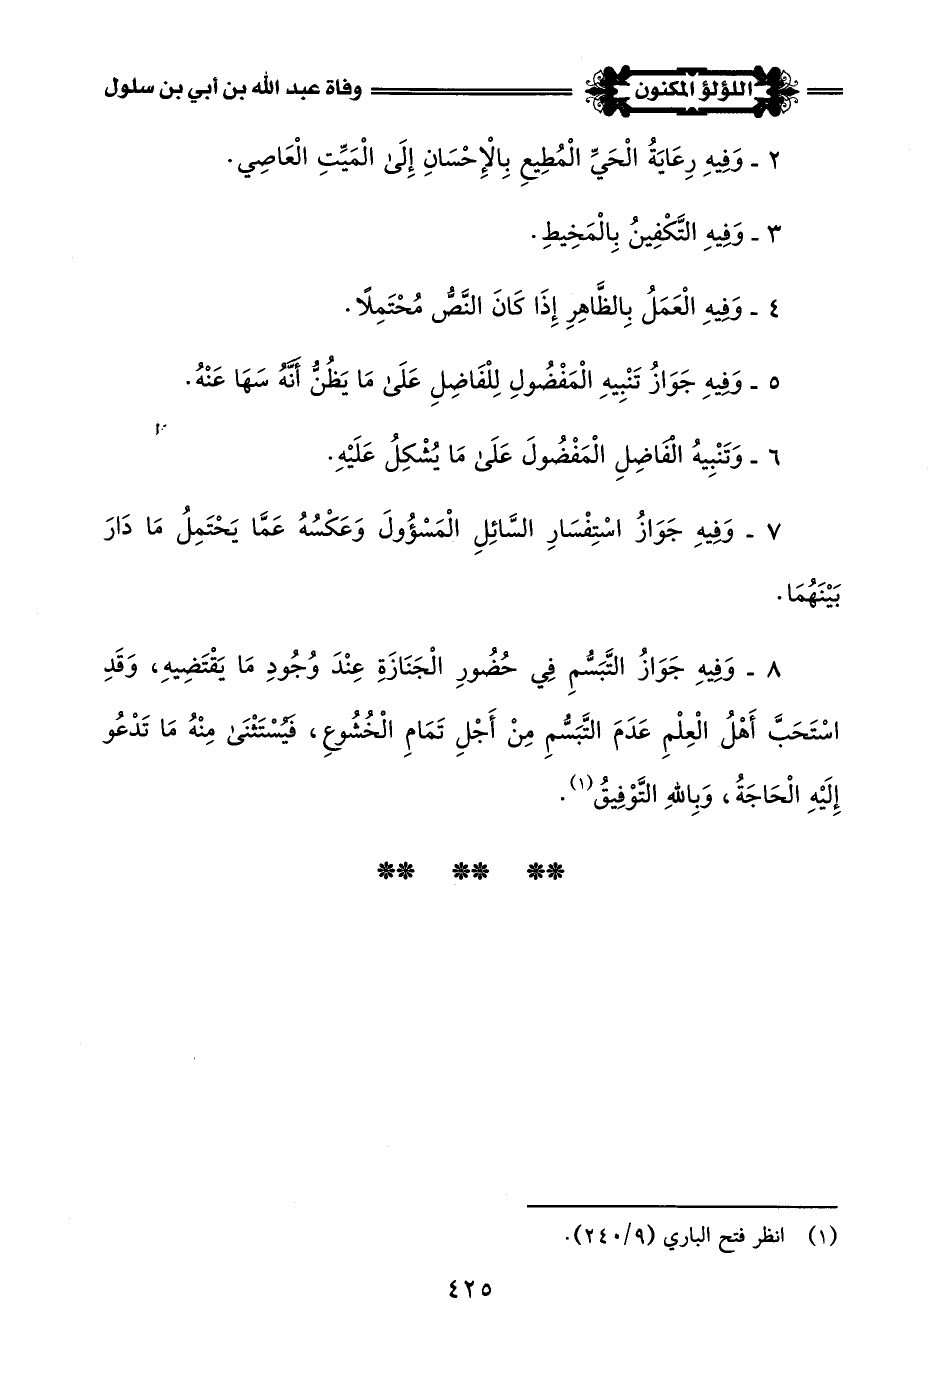 اللؤلؤ المكنون وفاة عبد الله بن أبي بن سلول
٢ ـ وَفِيهِ رِعَايَةُ الْحَيِّ الْمُطِيعِ بِالْإِحْسَانِ إِلَىٰ الْمَيِّتِ الْعَاصِي.
٣ ـ وَفِيهِ التَّكْفِينُ بِالْمَخِيطِ.
٤ ـ وَفِيهِ الْعَمَلُ بِالظَّاهِرِ إِذَا كَانَ النَّصُّ مُحْتَمِلًا.
٥ ـ وَفِيهِ جَوَازُ تَنْبِيهِ الْمَفْضُولِ لِلْفَاضِلِ عَلَىٰ مَا يَظُنُّ أَنَّهُ سَهَا عَنْهُ.
٦ ـ وَتَنْبِيهُ الْفَاضِلِ الْمَفْضُولَ عَلَىٰ مَا يُشْكِلُ عَلَيْهِ.
٧ ـ وَفِيهِ جَوَازُ اسْتِفْسَارِ السَّائِلِ الْمَسْؤُولَ وَعَكْسُهُ عَمَّا يَحْتَمِلُ مَا دَارَ
بَيْنَهُمَا.
٨ ـ وَفِيهِ جَوَازُ التَّبَسُّمِ فِي حُضُورِ الْجَنَازَةِ عِنْدَ وُجُودِ مَا يَقْتَضِيهِ، وَقَدِ
اسْتَحَبَّ أَهْلُ الْعِلْمِ عَدَمَ التَّبَسُّمِ مِنْ أَجْلِ تَمَامِ الْخُشُوعِ، فَيُسْتَثْنَىٰ مِنْهُ مَا تَدْعُو
إِلَيْهِ الْحَاجَةُ، وَبِاللهِ التَّوْفِيقُ(١).
** ** **
(١) انظر فتح الباري (٢٤٠/٩).
٤٢٥